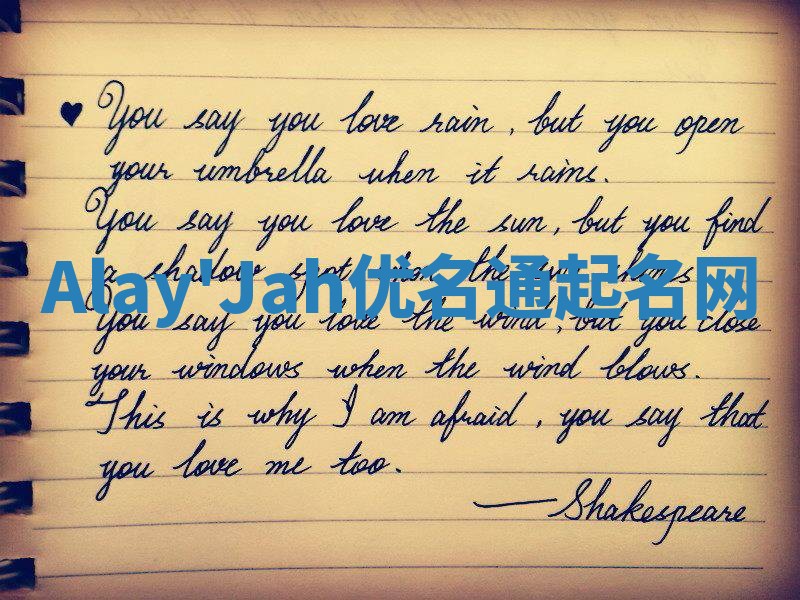 ♥ You say you love rain, but you open
your umbrella when it rains.
You say you love the sun, but you find
a shadow spot when the sun shines
Alay'Jah优名通起名网
You say you love the wind, but you close
your windows when the wind blows.
This is why I am afraid, you say that
you love me too.
—Shakespeare